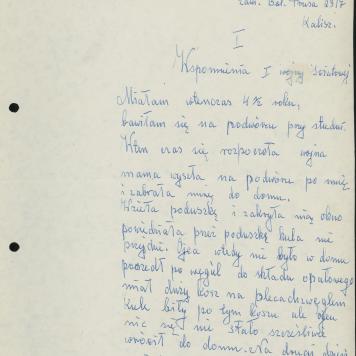 zam. Bol. Prusa 29/7
Kalisz.
I
Wspomnienia I wojny światowej
Miałam wtenczas 4½ roku,
bawiłam się na podwórzu przy studni.
W ten czas się rozpoczeła wojna
mama wyszła na podwóże po mnię
i zabrała mnię do domu.
Wzieła poduszkę i zakryła nią okno
powidziała przez poduszkę kula nie
przejdzie. Ojca wtedy nie było w domu
poszedł po węgiel do składu opałowego
miał duży kosz na plecach z węglem
kule biły po tym koszu ale ojcu
nic się nie stało szczęśliwie
wrócił do domu. Na drugi dzień